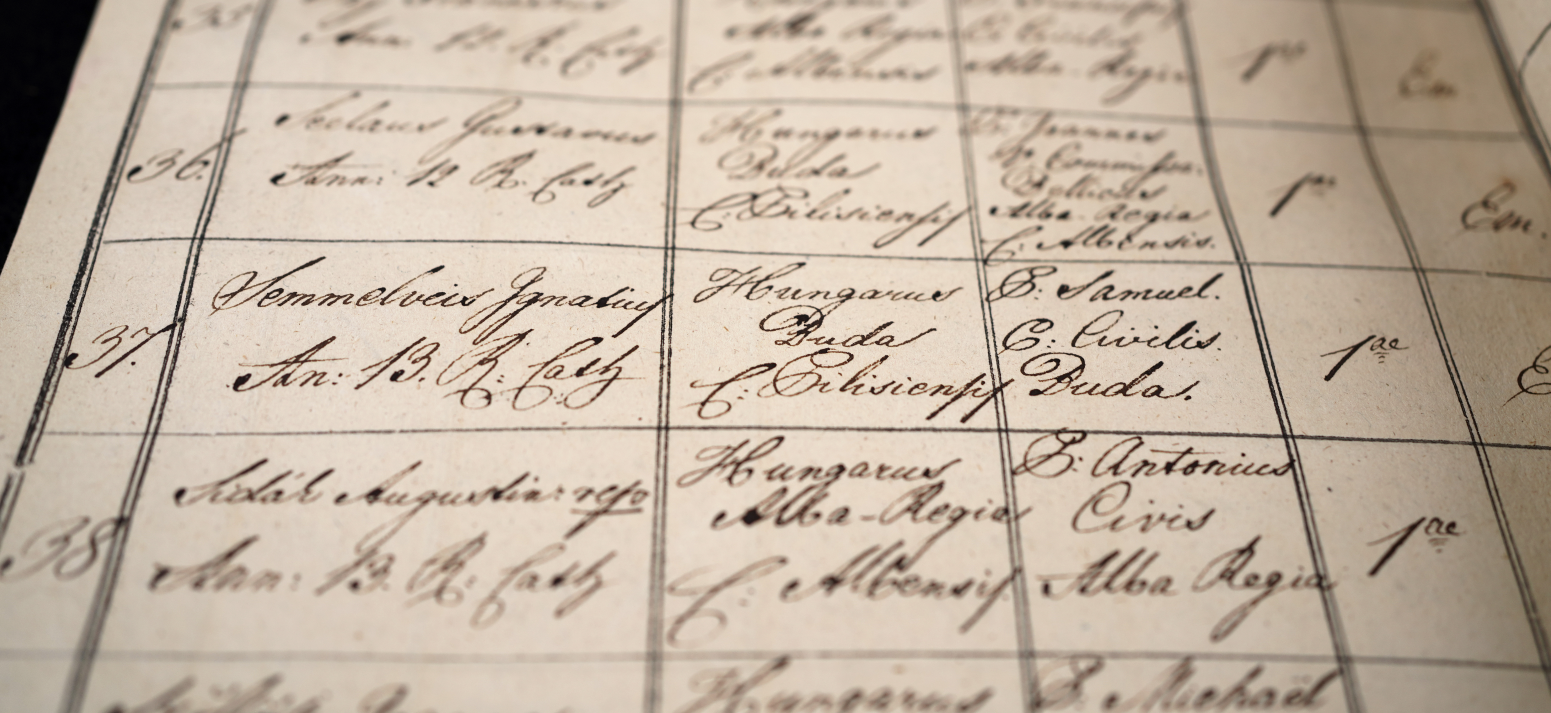 35
Ann: 12. R. Cath
Alba Regia
C. Albensis
C. Civilis
Alba-Regia
1ae
Em
36.
Gustavus
Ann: 12 R. Cath
Hungarus
Buda
C: Pilisiensis
P: Joannes
R. Commissar:
Bellicus
Alba-Regia
C: Albensis.
1ae
Em.
37.
Semmelveis Ignatius
An: 13. R: Cath
Hungarus
Buda
C: Pilisiensis
P: Samuel.
C: Civilis.
Buda.
1ae
38
Sidár Augustin: repo
Ann: 13. R. Cath
Hungarus
Alba-Regia
C: Albensis
P: Antonius
Civis
Alba Regia
1ae
Hungarus
P. Michaël